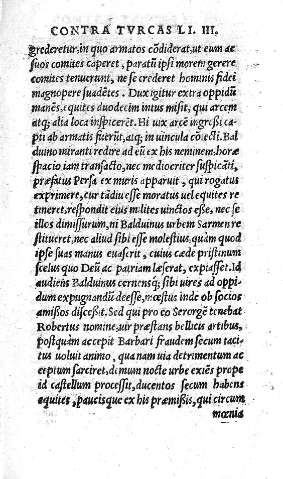 CONTRA TVRCAS LI. III.
grederetur, in quo armatos cõdiderat, ut eum ac
suos comites caperet, paratũ ipsi morem gerere
comites tenuerunt, ne se crederet hominis fidei
magnopere suadẽtes. Dux igitur extra oppidũ
manẽs, equites duodecim intus misit, qui arcem
atq; alia loca inspicerẽt. Hi ut arcẽ ingressi ca-
pti ab armatis fuerũt, atq; in uincula cõiecti. Bal
duino miranti redire ad eũ ex his neminem, horæ
spacio iam transacto, nec mediocriter suspicãti,
præfatus Persa ex muris apparuit, qui rogatus
exprimere, cur tãdiu esse moratus uel equites re
tineret, respondit eius milites uinctos esse, nec se
illos dimissurum, ni Balduinus urbem Sarmen re
stitueret, nec aliud sibi esse molestius, quàm quod
ipse suas manus euaserit, cuius cæde pristinum
scelus quo Deũ ac patriam læserat, expiasset. Id
audiens Balduinus cernensq; sibi uires ad oppi-
dum expugnandũ deesse, mœstus inde ob socios
amissos discessit. Sed qui pro eo Serorgẽ tenebat
Robertus nomine, uir præstans bellicis artibus,
postquàm accepit Barbari fraudem secum taci-
tus uoluit animo, qua nam uia detrimentum ac
ceptum sarciret, demum nocte urbe exiẽs prope
id castellum processit, ducentos secum habens
equites, paucisque ex his præmissis, qui circum
mœnia